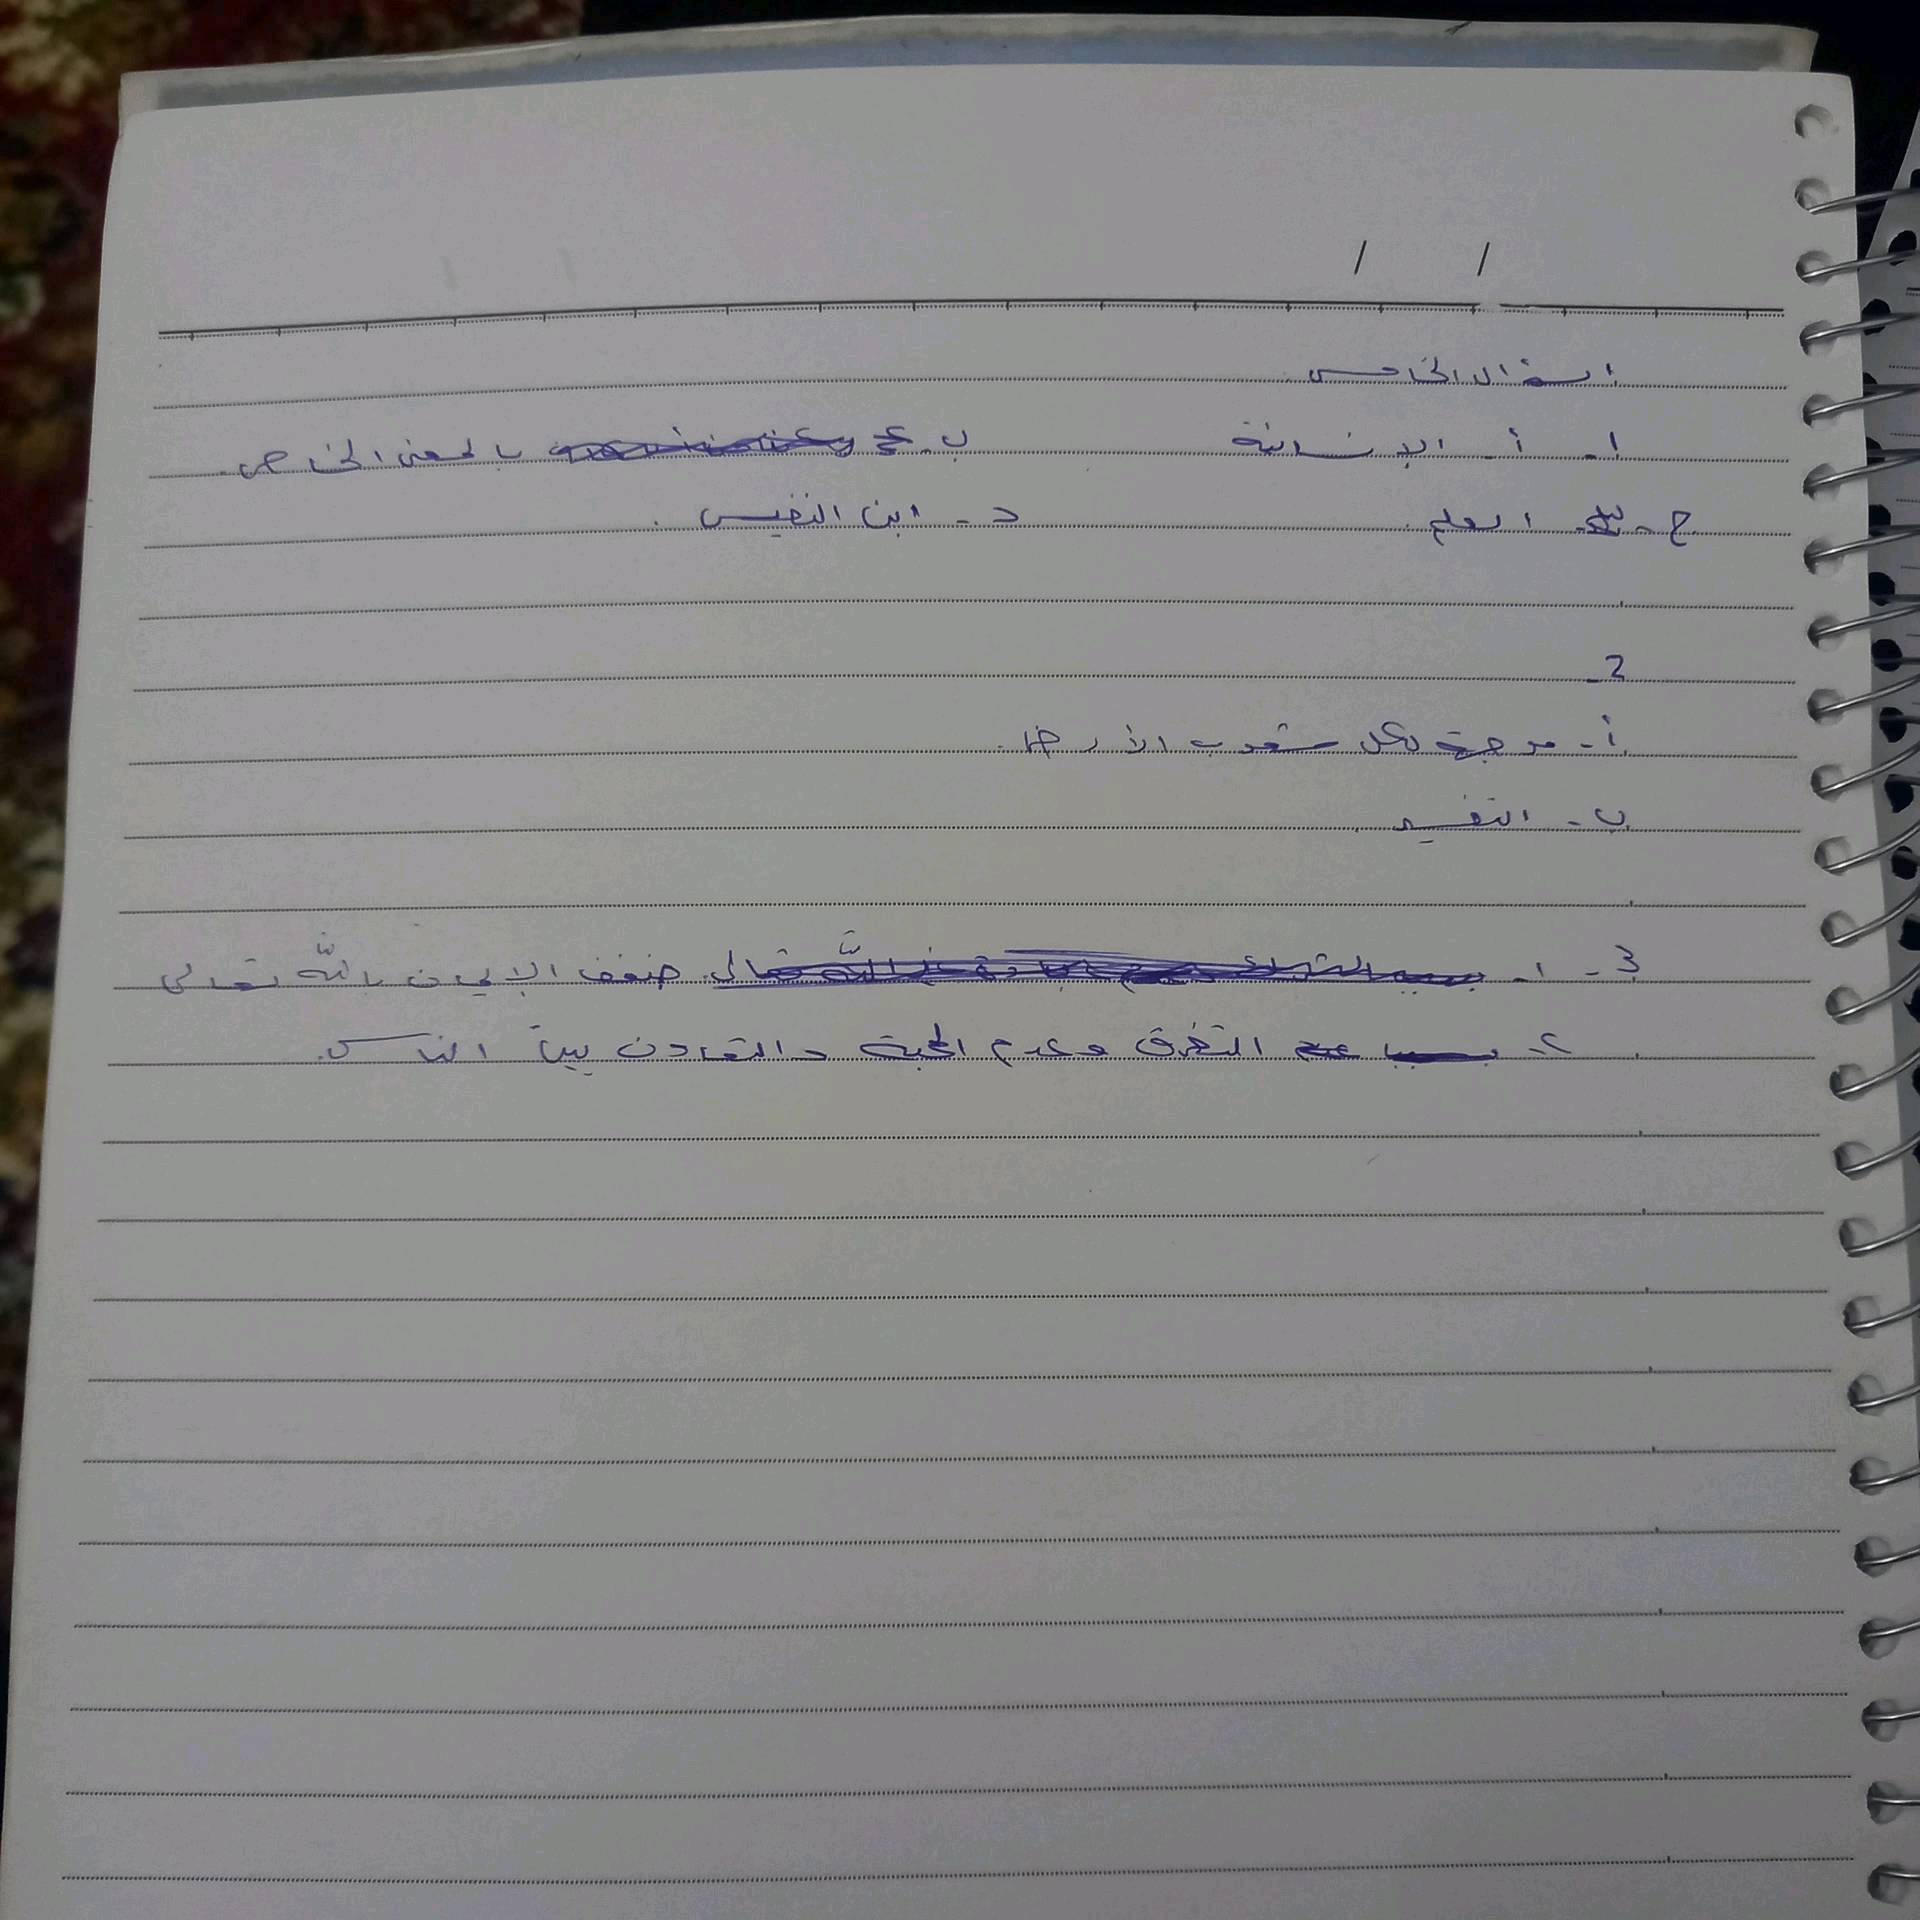 / /
السؤال الخامس
1- أ- الإنسانية ب- بالمعنى الخاص.
ج- العلم. د- ابن النفيس.
2-
أ- موجهة لكل شعوب الأرض.
ب- التفسير.
3- 1- ضعف الإيمان باللّه تعالى
2- التفرق وعدم المحبة والتعاون بين الناس.